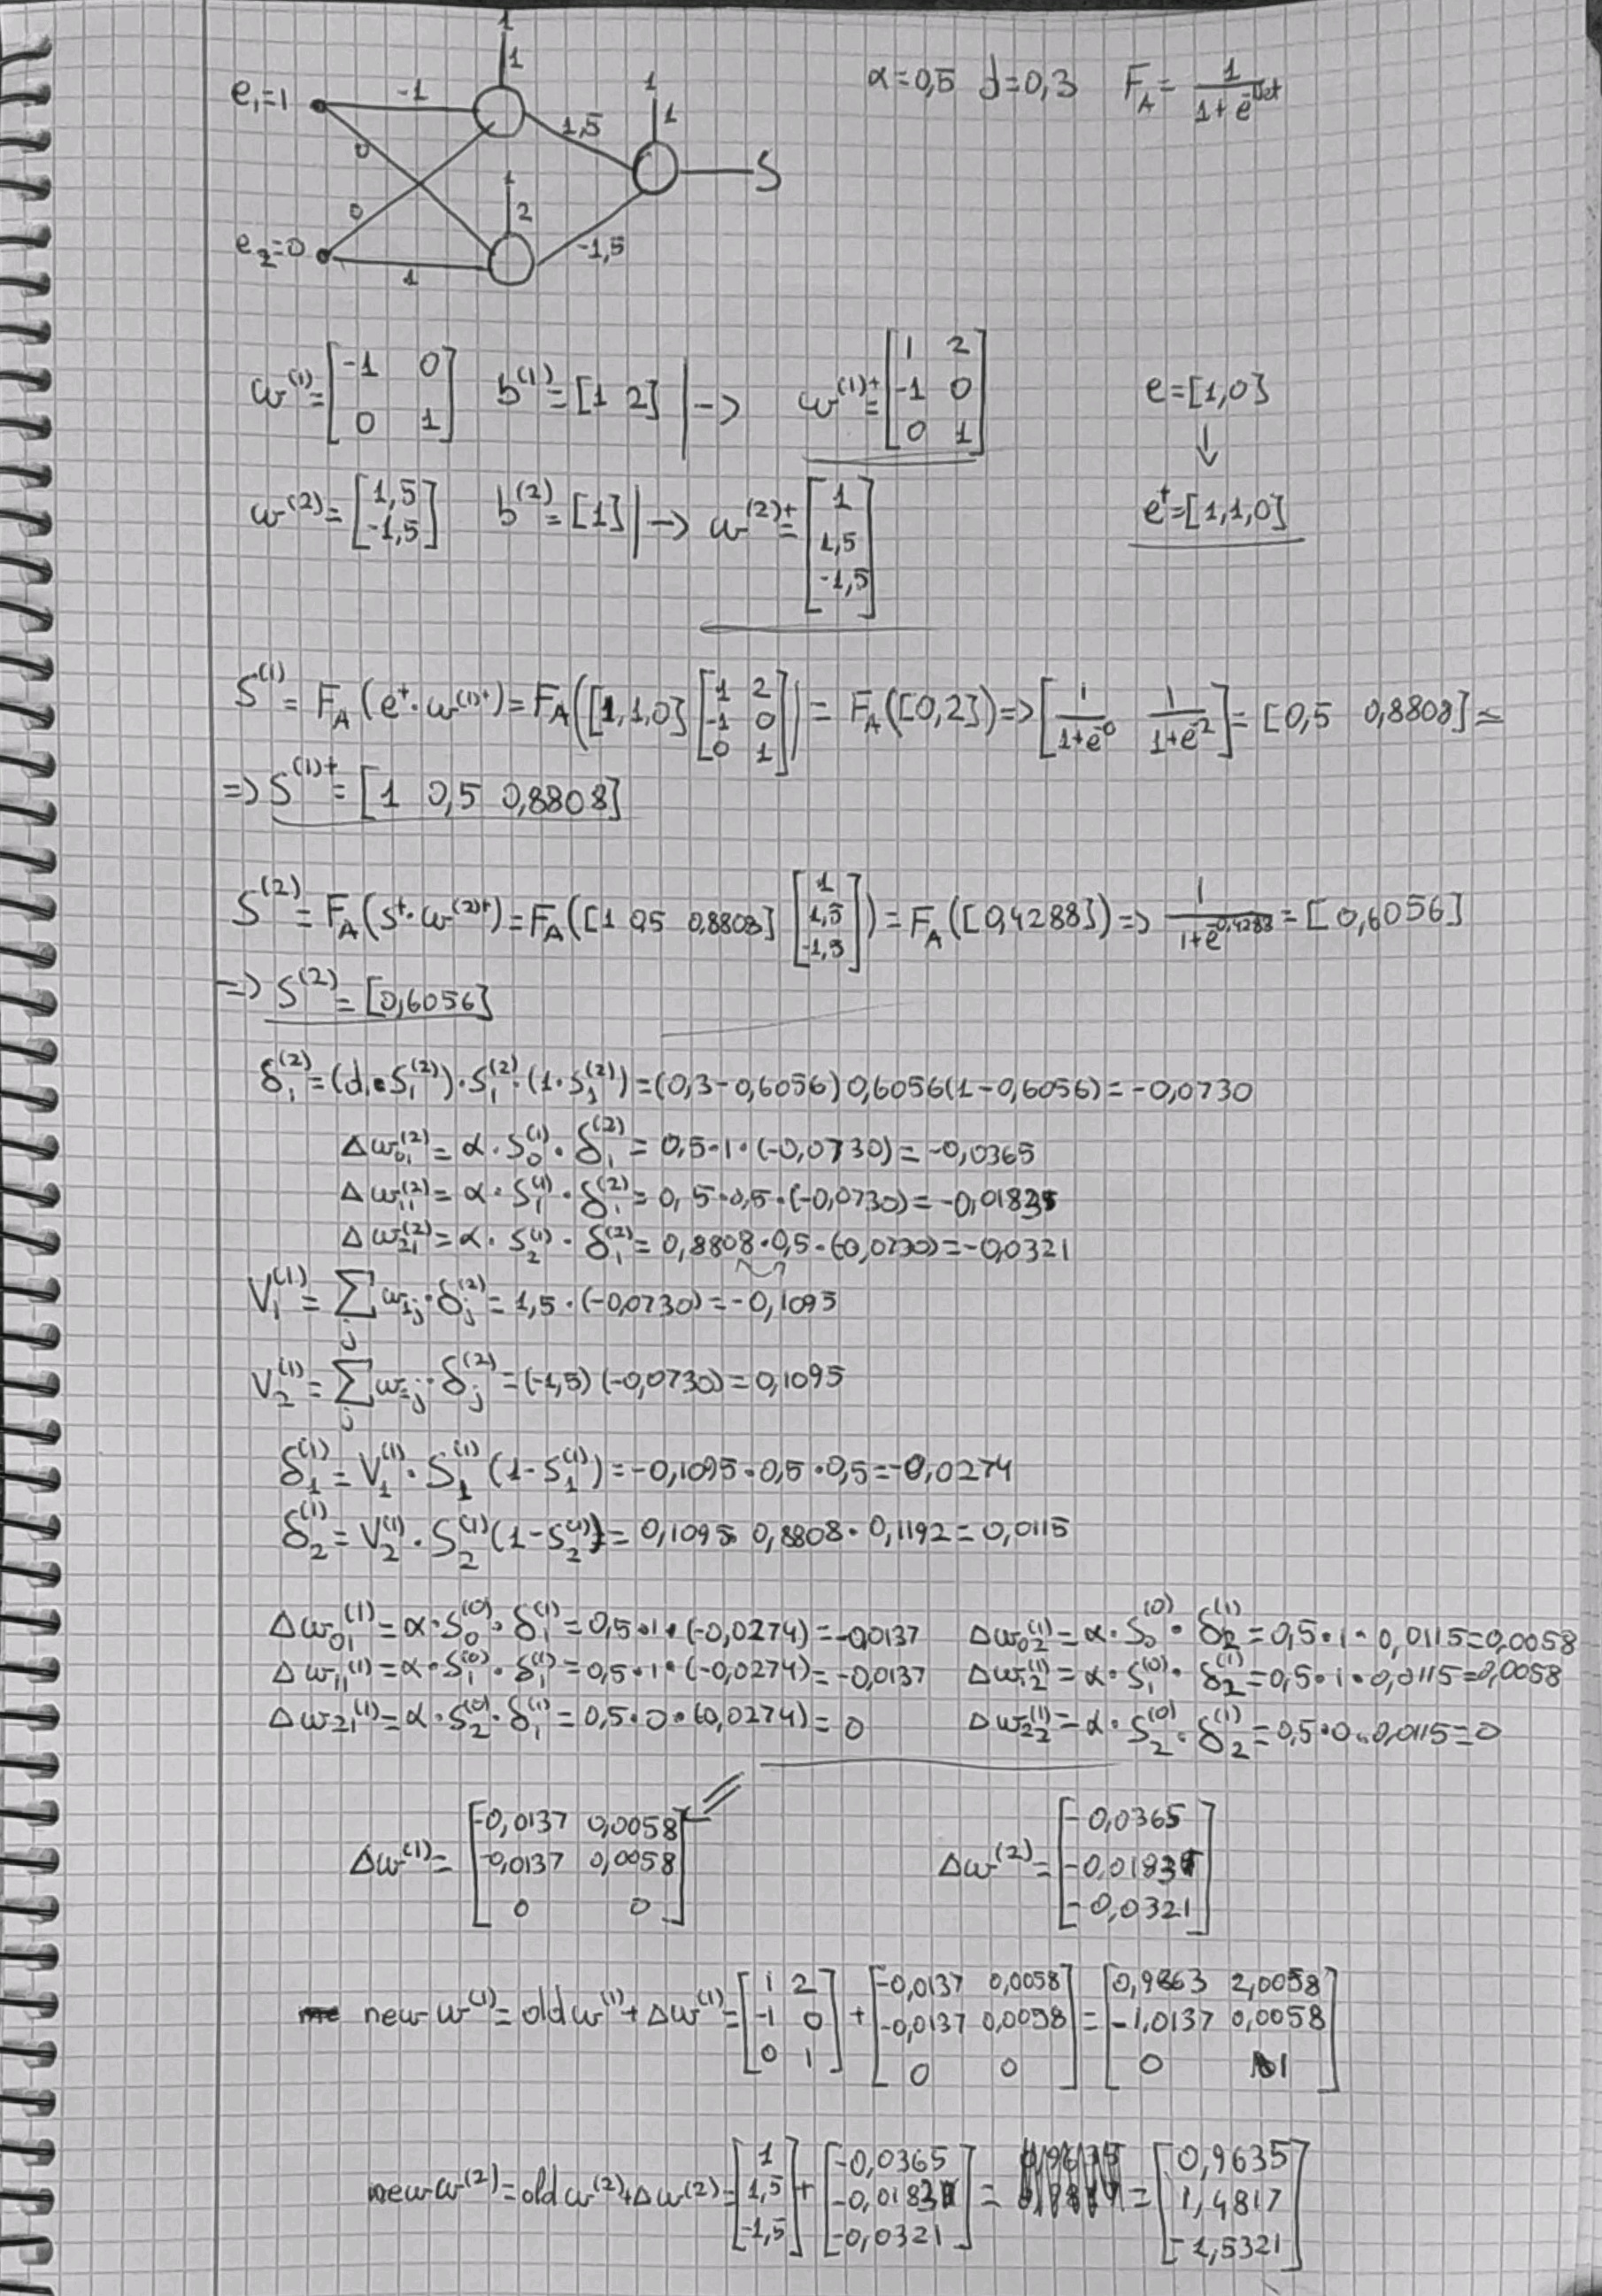 1
1
e₁=1 -1 1,5 1 1 α=0,5 d=0,3 F_A = 1/(1+e^-Net)
0 S
0 1 2
e₂=0 1 -1,5
w⁽¹⁾=[-1 0; 0 1] b⁽¹⁾=[1 2] |-> w⁽¹⁾⁺=[1 2; -1 0; 0 1] e=[1,0]
↓
w⁽²⁾=[1,5; -1,5] b⁽²⁾=[1] |-> w⁽²⁾⁺=[1; 1,5; -1,5] e⁺=[1,1,0]
S⁽¹⁾=F_A(e⁺·w⁽¹⁾⁺)=F_A([1,1,0][1 2; -1 0; 0 1])=F_A([0,2])=>[1/(1+e^-0) 1/(1+e^-2)]=[0,5 0,8808]=
=>S⁽¹⁾⁺=[1 0,5 0,8808]
S⁽²⁾=F_A(S⁺·w⁽²⁾⁺)=F_A([1 0,5 0,8808][1; 1,5; -1,5])=F_A([0,4288])=>1/(1+e^-0,4288)=[0,6056]
=>S⁽²⁾=[0,6056]
δ₁⁽²⁾=(d-S₁⁽²⁾)·S₁⁽²⁾·(1-S₁⁽²⁾)=(0,3-0,6056)0,6056(1-0,6056)=-0,0730
Δw₀₁⁽²⁾=α·S₀⁽¹⁾·δ₁⁽²⁾=0,5·1·(-0,0730)=-0,0365
Δw₁₁⁽²⁾=α·S₁⁽¹⁾·δ₁⁽²⁾=0,5·0,5·(-0,0730)=-0,0183
Δw₂₁⁽²⁾=α·S₂⁽¹⁾·δ₁⁽²⁾=0,8808·0,5·(-0,0730)=-0,0321
V₁⁽¹⁾=∑j w₁j·δj⁽²⁾=1,5·(-0,0730)=-0,1095
V₂⁽¹⁾=∑j w₂j·δj⁽²⁾=(-1,5)(-0,0730)=0,1095
δ₁⁽¹⁾=V₁⁽¹⁾·S₁⁽¹⁾(1-S₁⁽¹⁾)=-0,1095·0,5·0,5=-0,0274
δ₂⁽¹⁾=V₂⁽¹⁾·S₂⁽¹⁾(1-S₂⁽¹⁾)=0,1095·0,8808·0,1192=0,0115
Δw₀₁⁽¹⁾=α·S₀⁽⁰⁾·δ₁⁽¹⁾=0,5·1·(-0,0274)=-0,0137 Δw₀₂⁽¹⁾=α·S₀⁽⁰⁾·δ₂⁽¹⁾=0,5·1·0,0115=0,0058
Δw₁₁⁽¹⁾=α·S₁⁽⁰⁾·δ₁⁽¹⁾=0,5·1·(-0,0274)=-0,0137 Δw₁₂⁽¹⁾=α·S₁⁽⁰⁾·δ₂⁽¹⁾=0,5·1·0,0115=0,0058
Δw₂₁⁽¹⁾=α·S₂⁽⁰⁾·δ₁⁽¹⁾=0,5·0·(-0,0274)=0 Δw₂₂⁽¹⁾=α·S₂⁽⁰⁾·δ₂⁽¹⁾=0,5·0·0,0115=0
Δw⁽¹⁾=[-0,0137 0,0058; -0,0137 0,0058; 0 0] Δw⁽²⁾=[-0,0365; -0,0183; -0,0321]
new w⁽¹⁾=old w⁽¹⁾+Δw⁽¹⁾=[1 2; -1 0; 0 1]+[-0,0137 0,0058; -0,0137 0,0058; 0 0]=[0,9863 2,0058; -1,0137 0,0058; 0 1]
new w⁽²⁾=old w⁽²⁾+Δw⁽²⁾=[1; 1,5; -1,5]+[-0,0365; -0,0183; -0,0321]= =[0,9635; 1,4817; -1,5321]